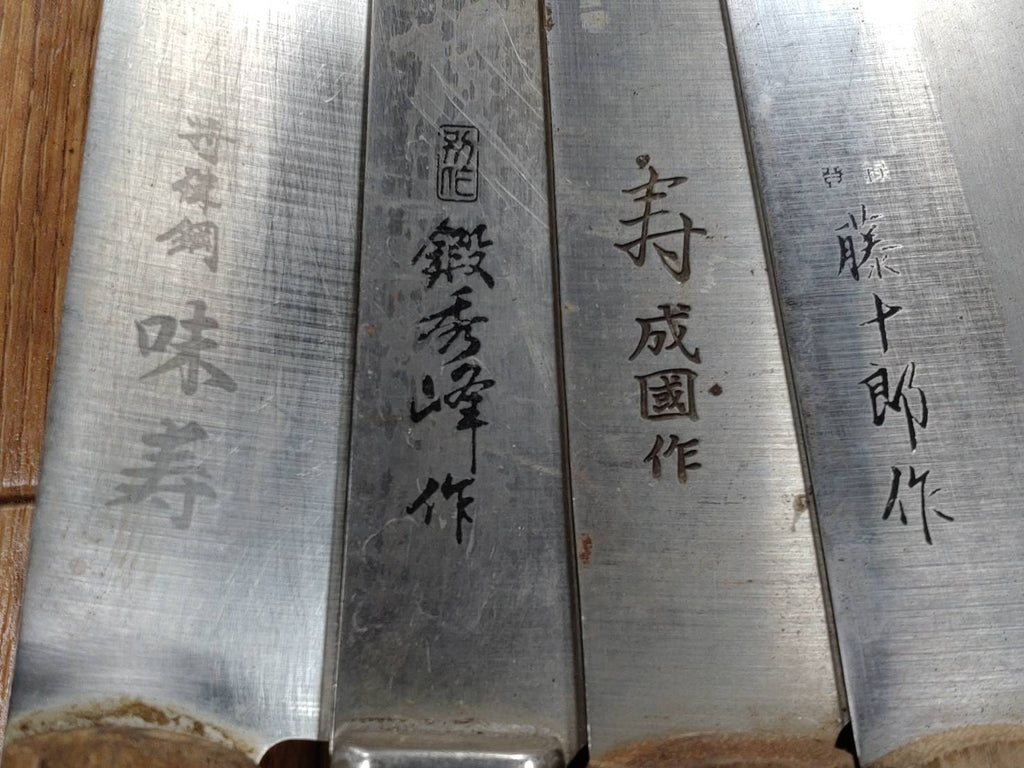 特殊鋼
味寿
別作
鍛秀峰作
寿成國作
登
藤十郎作